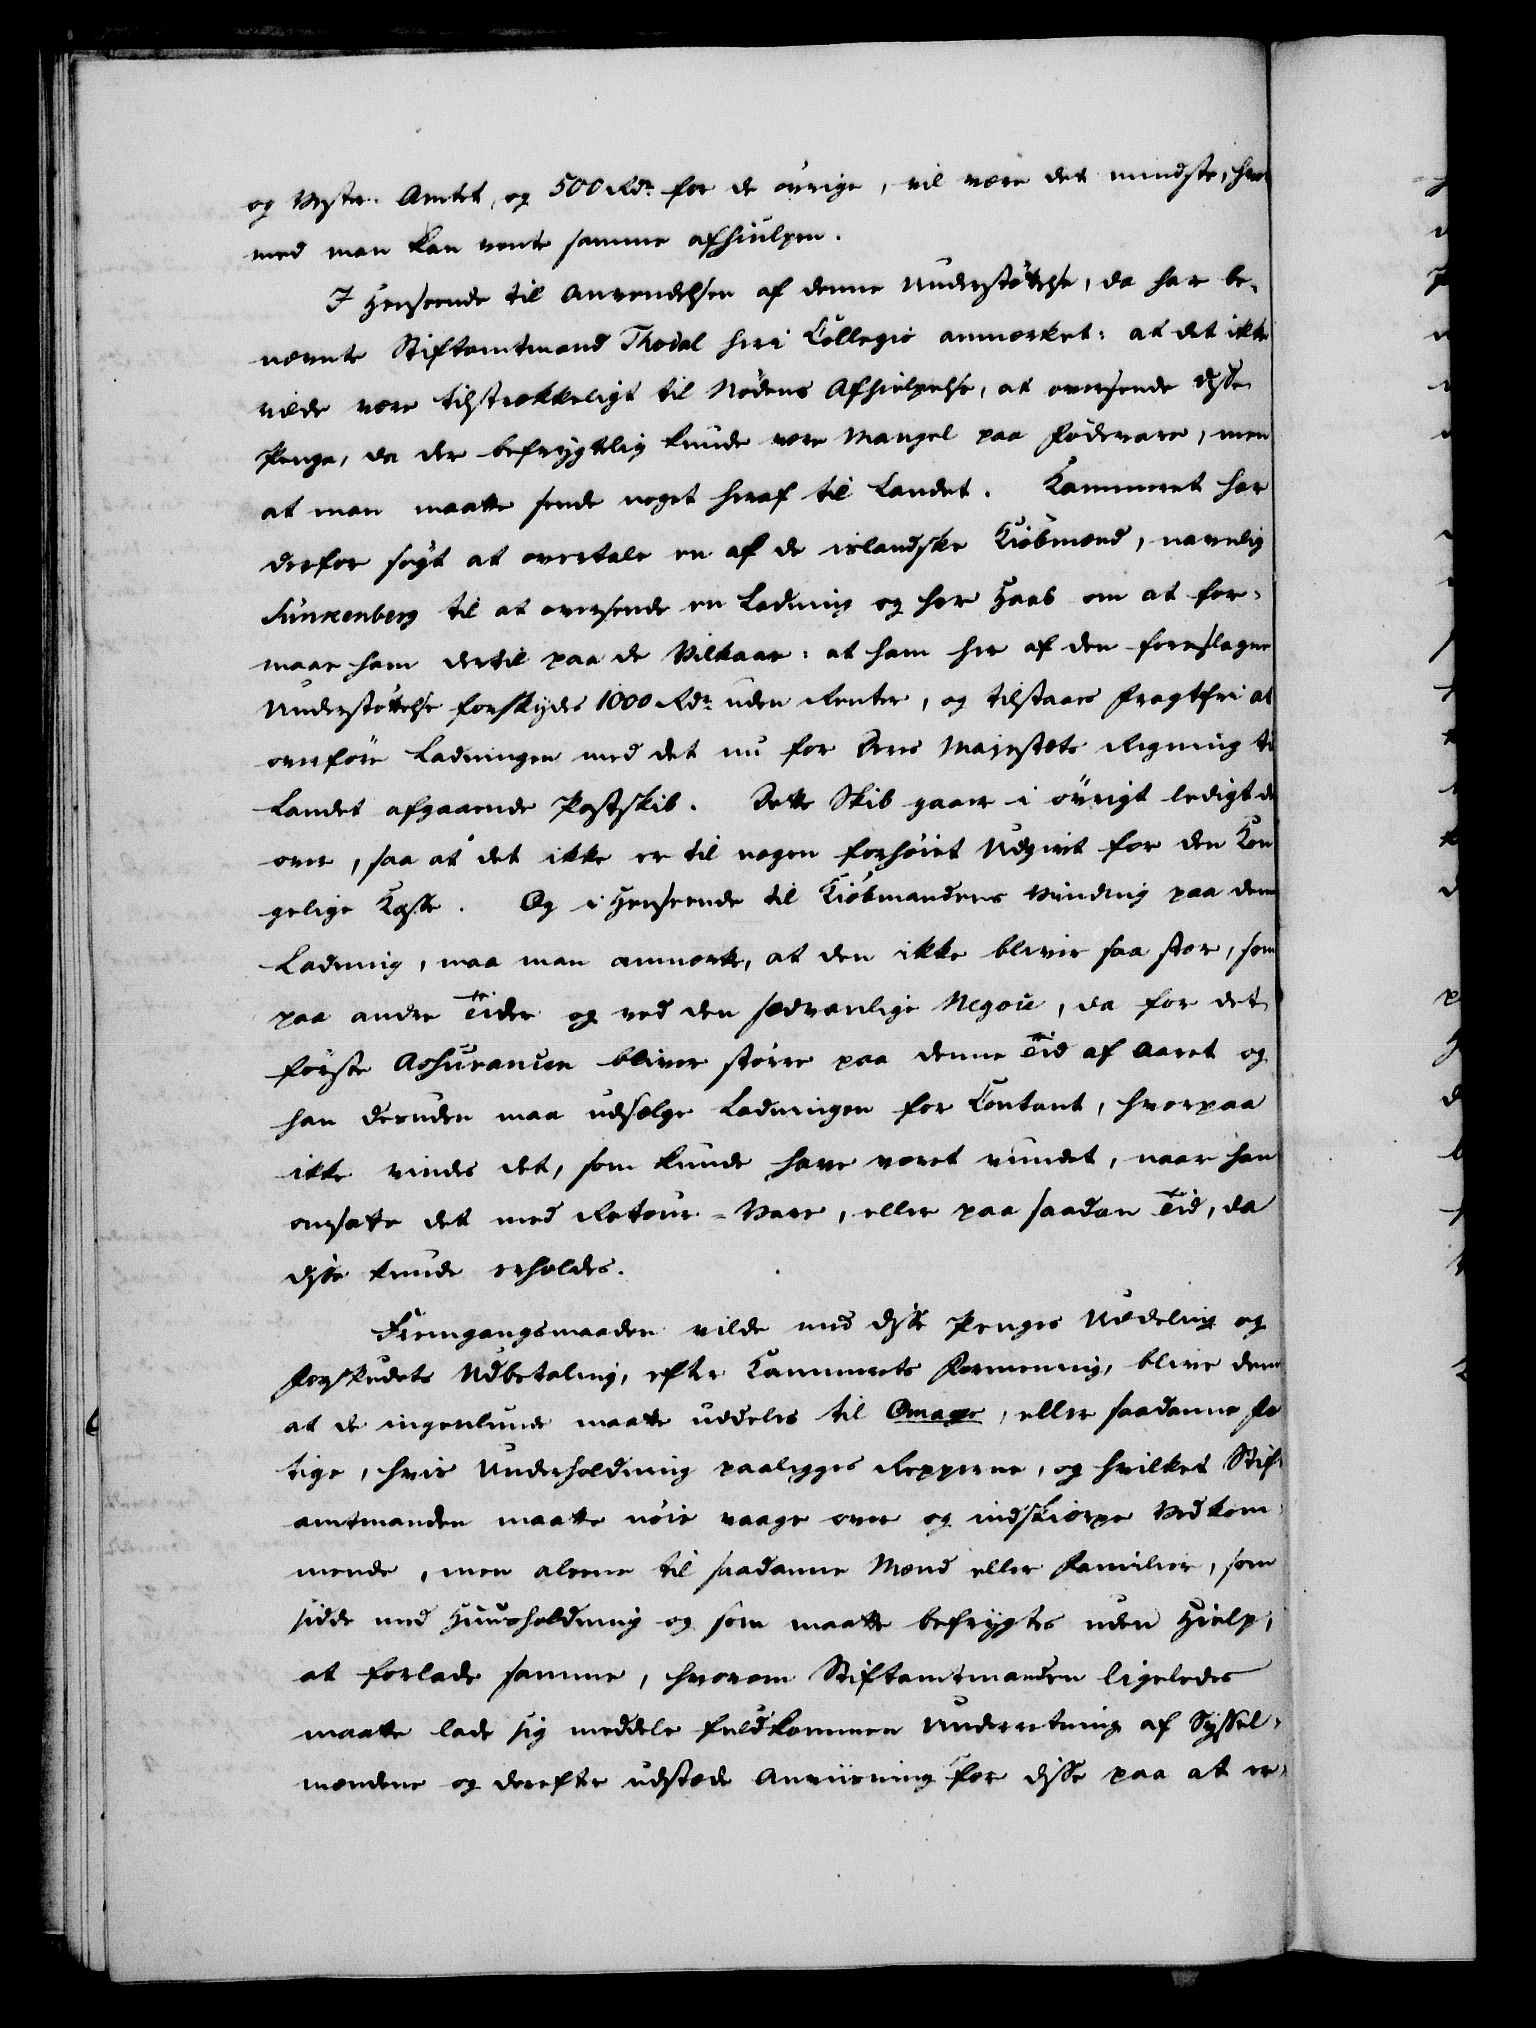 og Vester-Amtet, og 500 Rdr for de övrige, vil være det mindste, hvor
med man kan vente samme afhiulpen.
I Henseende til Anvendelsen af denne Understöttelse, da har be-
nævnte Stiftamtmand Thodal her i Collegio anmærket: at det ikke
vilde være tilstrækkeligt til Nödens Afhielpelse, at oversende disse
Penge, da der befrygtelig kunde være Mangel paa Födevare, men
at man maatte sende noget heraf til Landet. Kammeret har
derfor sögt at overtale en af de islandske Kiöbmænd, navnlig
Sunckenberg til at oversende en Ladning og har Haab om at for-
maae ham dertil paa de Vilkaar: at ham her af den foreslagne
Understöttelse forskydes 1000 Rdr uden Renter, og tilstaaes fragtfri at
overföre Ladningen med det nu for Deres Majestæts Regning til
Landet afgaaende Postskib. Dette Skib gaaer i övrigt ledigt der
over, saa at det ikke er til nogen forhöiet Udgivt for den Kon
gelige Kasse. Og i Henseende til Kiöbmandens Vinding paa denne
Ladning, maa man anmærke, at den ikke bliver saa stor, som
paa andre Tider og ved den sædvanlige Negoce, da for det
förste Assurancen bliver större paa denne Tid af Aaret og
han desuden maa udsælge Ladningen for Contant, hvorpaa
ikke vindes det, som kunde have været vundet, naar han
omsatte det med Retour-Vare, eller paa saadan Tid, da
disse kunde erholdes.
Fremgangsmaaden vilde med disse Penges Uddeling og
Forskudets Udbetaling, efter Kammerets Formening, blive denne
at de ingenlunde maatte uddeles til Omager, eller saadanne fat
tige, hvis Underholdning paaligges Repperne, og hvilket Stift
amtmanden maatte nöie vaage over og indskiærpe Vedkom-
mende, men alene til saadanne Mænd eller Familier, som
sidde med Huusholdning og som maatte befrygtes uden Hielp,
at forlade samme, hvorom Stiftamtmanden ligeledes
maatte lade sig meddele fuldkommen Underretning af Syssel-
mændene og derefter udstede Anviisning for disse paa at er-